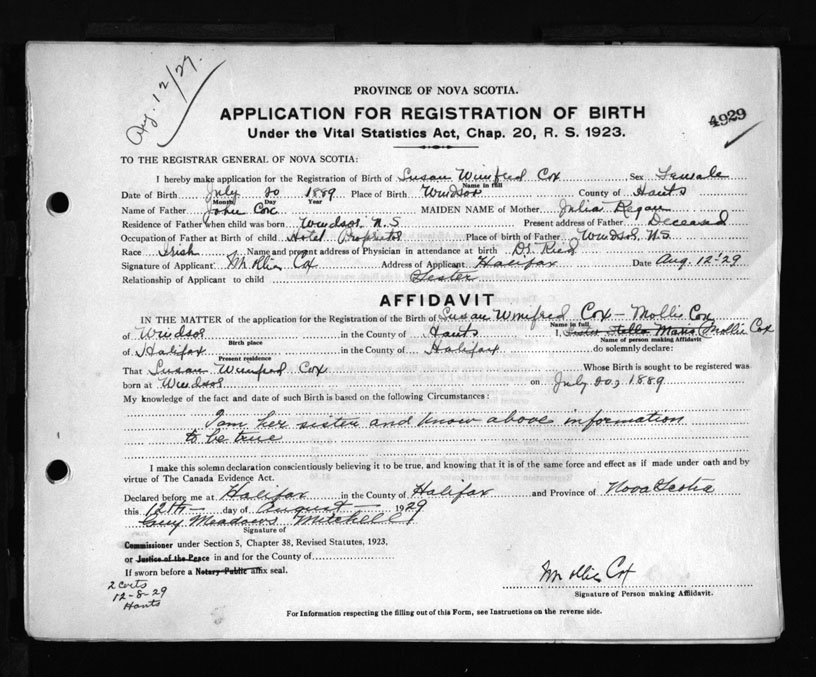 Aug. 12/29.
PROVINCE OF NOVA SCOTIA.
APPLICATION FOR REGISTRATION OF BIRTH
4929
Under the Vital Statistics Act, Chap. 20, R. S. 1923.
TO THE REGISTRAR GENERAL OF NOVA SCOTIA:
I hereby make application for the Registration of Birth of Susan Winifred Cox Sex Female
Name in full
Date of Birth July 20 1889 Place of Birth Windsor County of Hants
Month Day Year
Name of Father John Cox MAIDEN NAME of Mother Julia Regan
Residence of Father when child was born Windsor, N.S Present address of Father Deceased
Occupation of Father at Birth of child Hotel Proprietor Place of birth of Father Windsor, N.S.
Race Irish Name and present address of Physician in attendance at birth Dr.
Signature of Applicant Mollie Cox Address of Applicant Halifax Date Aug. 12 '29
Relationship of Applicant to child Sister
AFFIDAVIT
IN THE MATTER of the application for the Registration of the Birth of Susan Winifred Cox - Mollie Cox
Name in full
of Windsor in the County of Hants I, Sister Stella Maris (Mollie Cox
Birth place Name of person making Affidavit
of Halifax in the County of Halifax do solemnly declare:
Present residence
That Susan Winifred Cox Whose Birth is sought to be registered was
born at Windsor on July 20, 1889
My knowledge of the fact and date of such Birth is based on the following Circumstances:
I am her sister and know above information
to be true
I make this solemn declaration conscientiously believing it to be true, and knowing that it is of the same force and effect as if made under oath and by
virtue of The Canada Evidence Act.
Declared before me at Halifax in the County of Halifax and Province of Nova Scotia
this 12th day of August 1929
Meadows Mitchell
Signature of
Commissioner under Section 5, Chapter 38, Revised Statutes, 1923,
or Justice of the Peace in and for the County of
If sworn before a Notary Public affix seal.
Mollie Cox
Signature of Person making Affidavit.
2 Certs
12-8-29
Hants
For Information respecting the filling out of this Form, see Instructions on the reverse side.